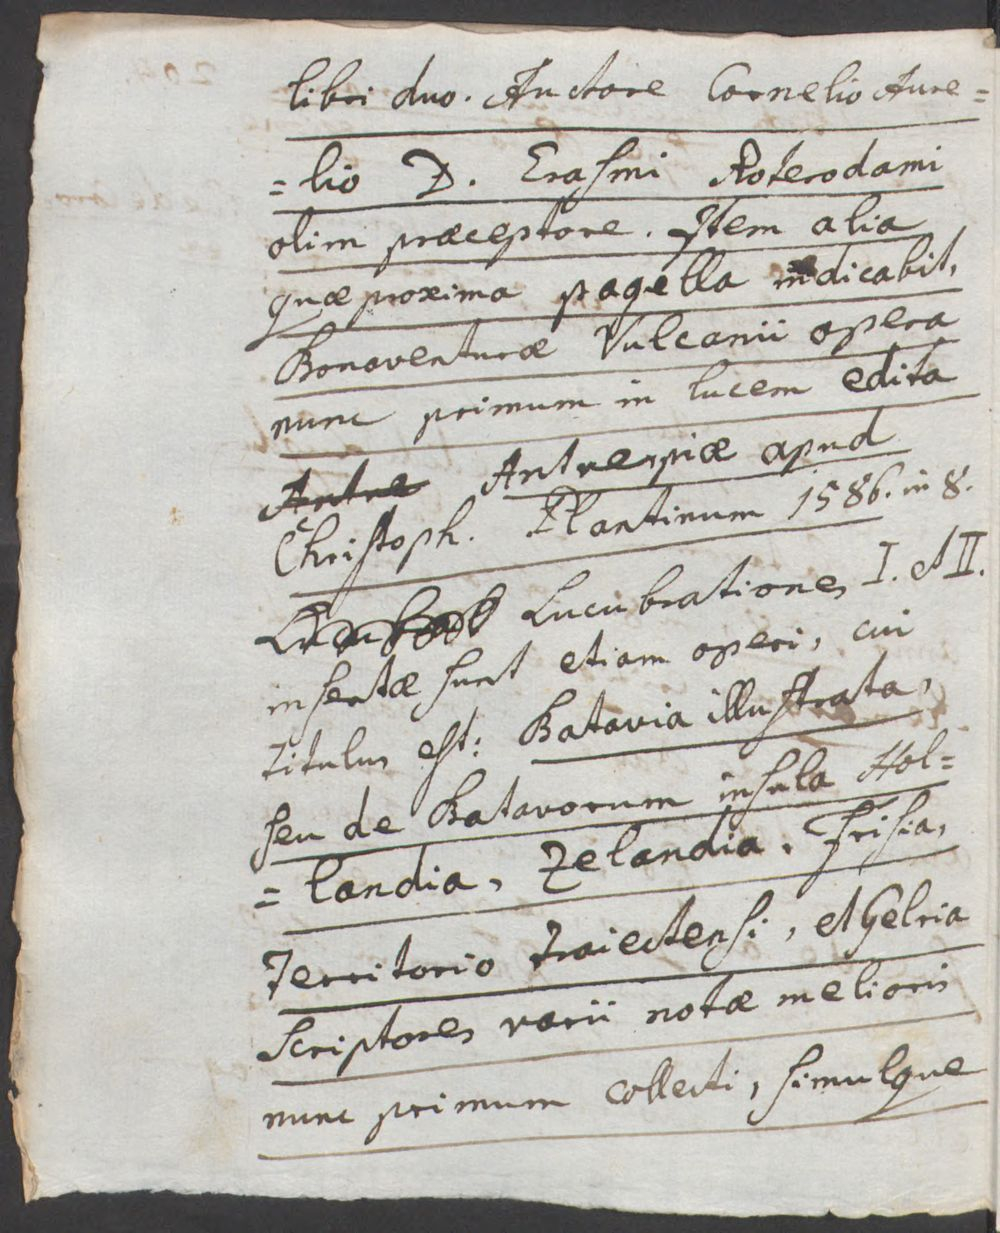 libri duo. Auctore Cornelio Aure=
=lio D. Erasmi Roterodami
olim præceptore. Item alia
quæ proxima pagella indicabit,
Bonaventuræ Vulcanii opera
nunc primum in lucem edita
Antve Antverpiæ apud
Christoph. Plantinum 1586. in 8.
Lucubrationes I. et II.
insertæ sunt etiam operi, cui
titulus est: Batavia illustrata,
seu de Batavorum insula Hol=
=landia, Zelandia, Frisia,
Territorio Traiectensi, et Gelria
Scriptores varii notæ melioris
nunc primum collecti, simulque